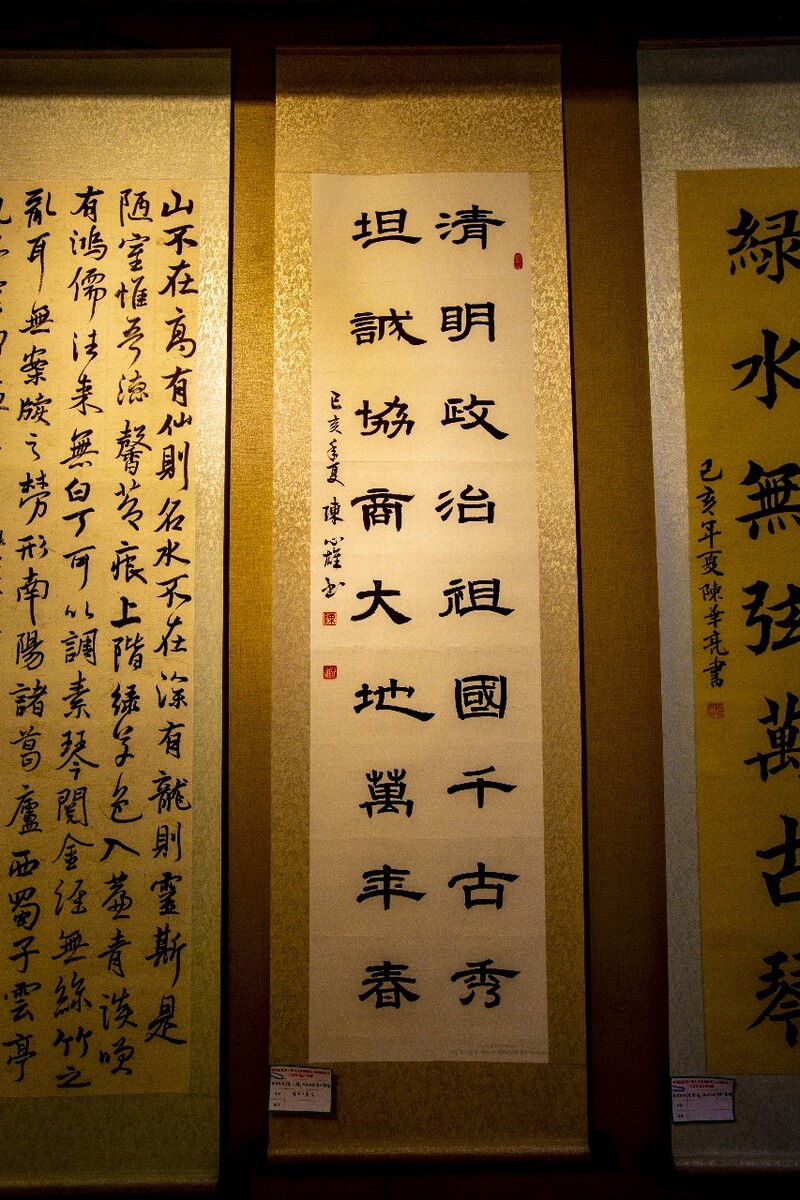 緑水無弦萬古琴
己亥年夏陳華亮書
清明政治祖國千古秀
坦誠協商大地萬年春
己亥年夏 陳心雄書
山不在高有仙則名水不在深有龍則靈斯是
陋室惟吾德馨苔痕上階緑草色入簾青談笑
有鴻儒往來無白丁可以調素琴閱金經無絲竹之
亂耳無案牘之勞形南陽諸葛廬西蜀子雲亭